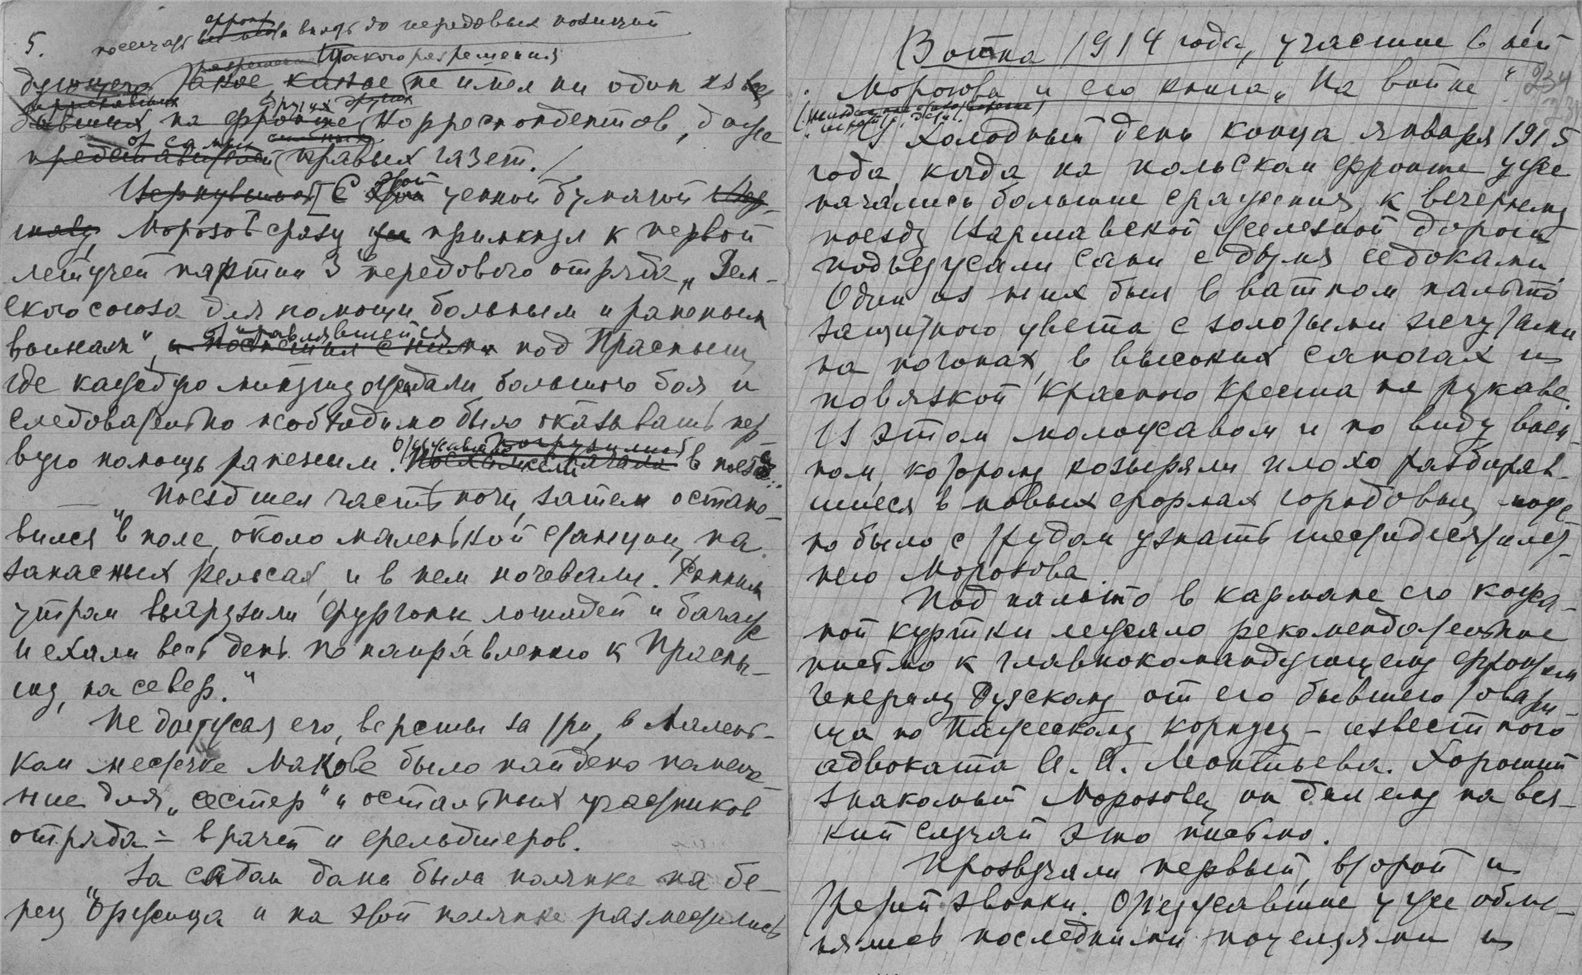 5.
посещать фронт вплоть до передовых позиций
Такого разрешения
не имел ни один из
на фронте корреспондентов, даже
правых газет.
С этой ценной бумагой
Морозов сразу примкнул к первой
летучей партии 3 передового отряда „Зем-
ского союза для помощи больным и раненым
воинам", отправлявшейся под Прасныш,
где каждую минуту ожидали большого боя и
следовательно необходимо было оказывать пер-
вую помощь раненым. в поезде:
„Поезд шел часть ночи, затем остано-
вился в поле, около маленькой станции, на
запасных рельсах, и в нем ночевали. Ранним
утром выгрузили фургоны лошадей и багаж
и ехали весь день по направлению к Прасны-
шу, на север."
Не доезжая его, версты за три, в малень-
ком местечке Макове было найдено помеще-
ние для „сестер" и остальных участников
отряда – врачей и фельдшеров.
„За садом дома была полянка на бе-
регу Оржица и на этой полянке разместились
Война 1914 года, участие в ней
Морозова и его книга „На войне"
234
Холодный день конца января 1915
года, когда на польском фронте уже
начались большие сражения, к вечернему
поезду Варшавской железной дороги
подъезжали сани с двумя седоками.
Один из них был в ватном пальто
защитного цвета с золотыми жгутами
на погонах, в высоких сапогах и
повязкой Красного Креста на рукаве.
В этом моложавом и по виду воен-
ном, которому козыряли плохо разбирав-
шиеся в новых формах городовые, мож-
но было с трудом узнать шестидесятилет-
него Морозова.
Под пальто в кармане его кожа-
ной куртки лежало рекомендательное
письмо к главнокомандующему фронтом
генералу Рузскому от его бывшего товари-
ща по Пажескому корпусу – известного
адвоката Леонтьева. Хороший
знакомый Морозова, он дал ему на вся-
кий случай это письмо.
Прозвучали первый, второй и
третий звонки. Отъезжавшие уже обме-
нялись последними поцелуями и